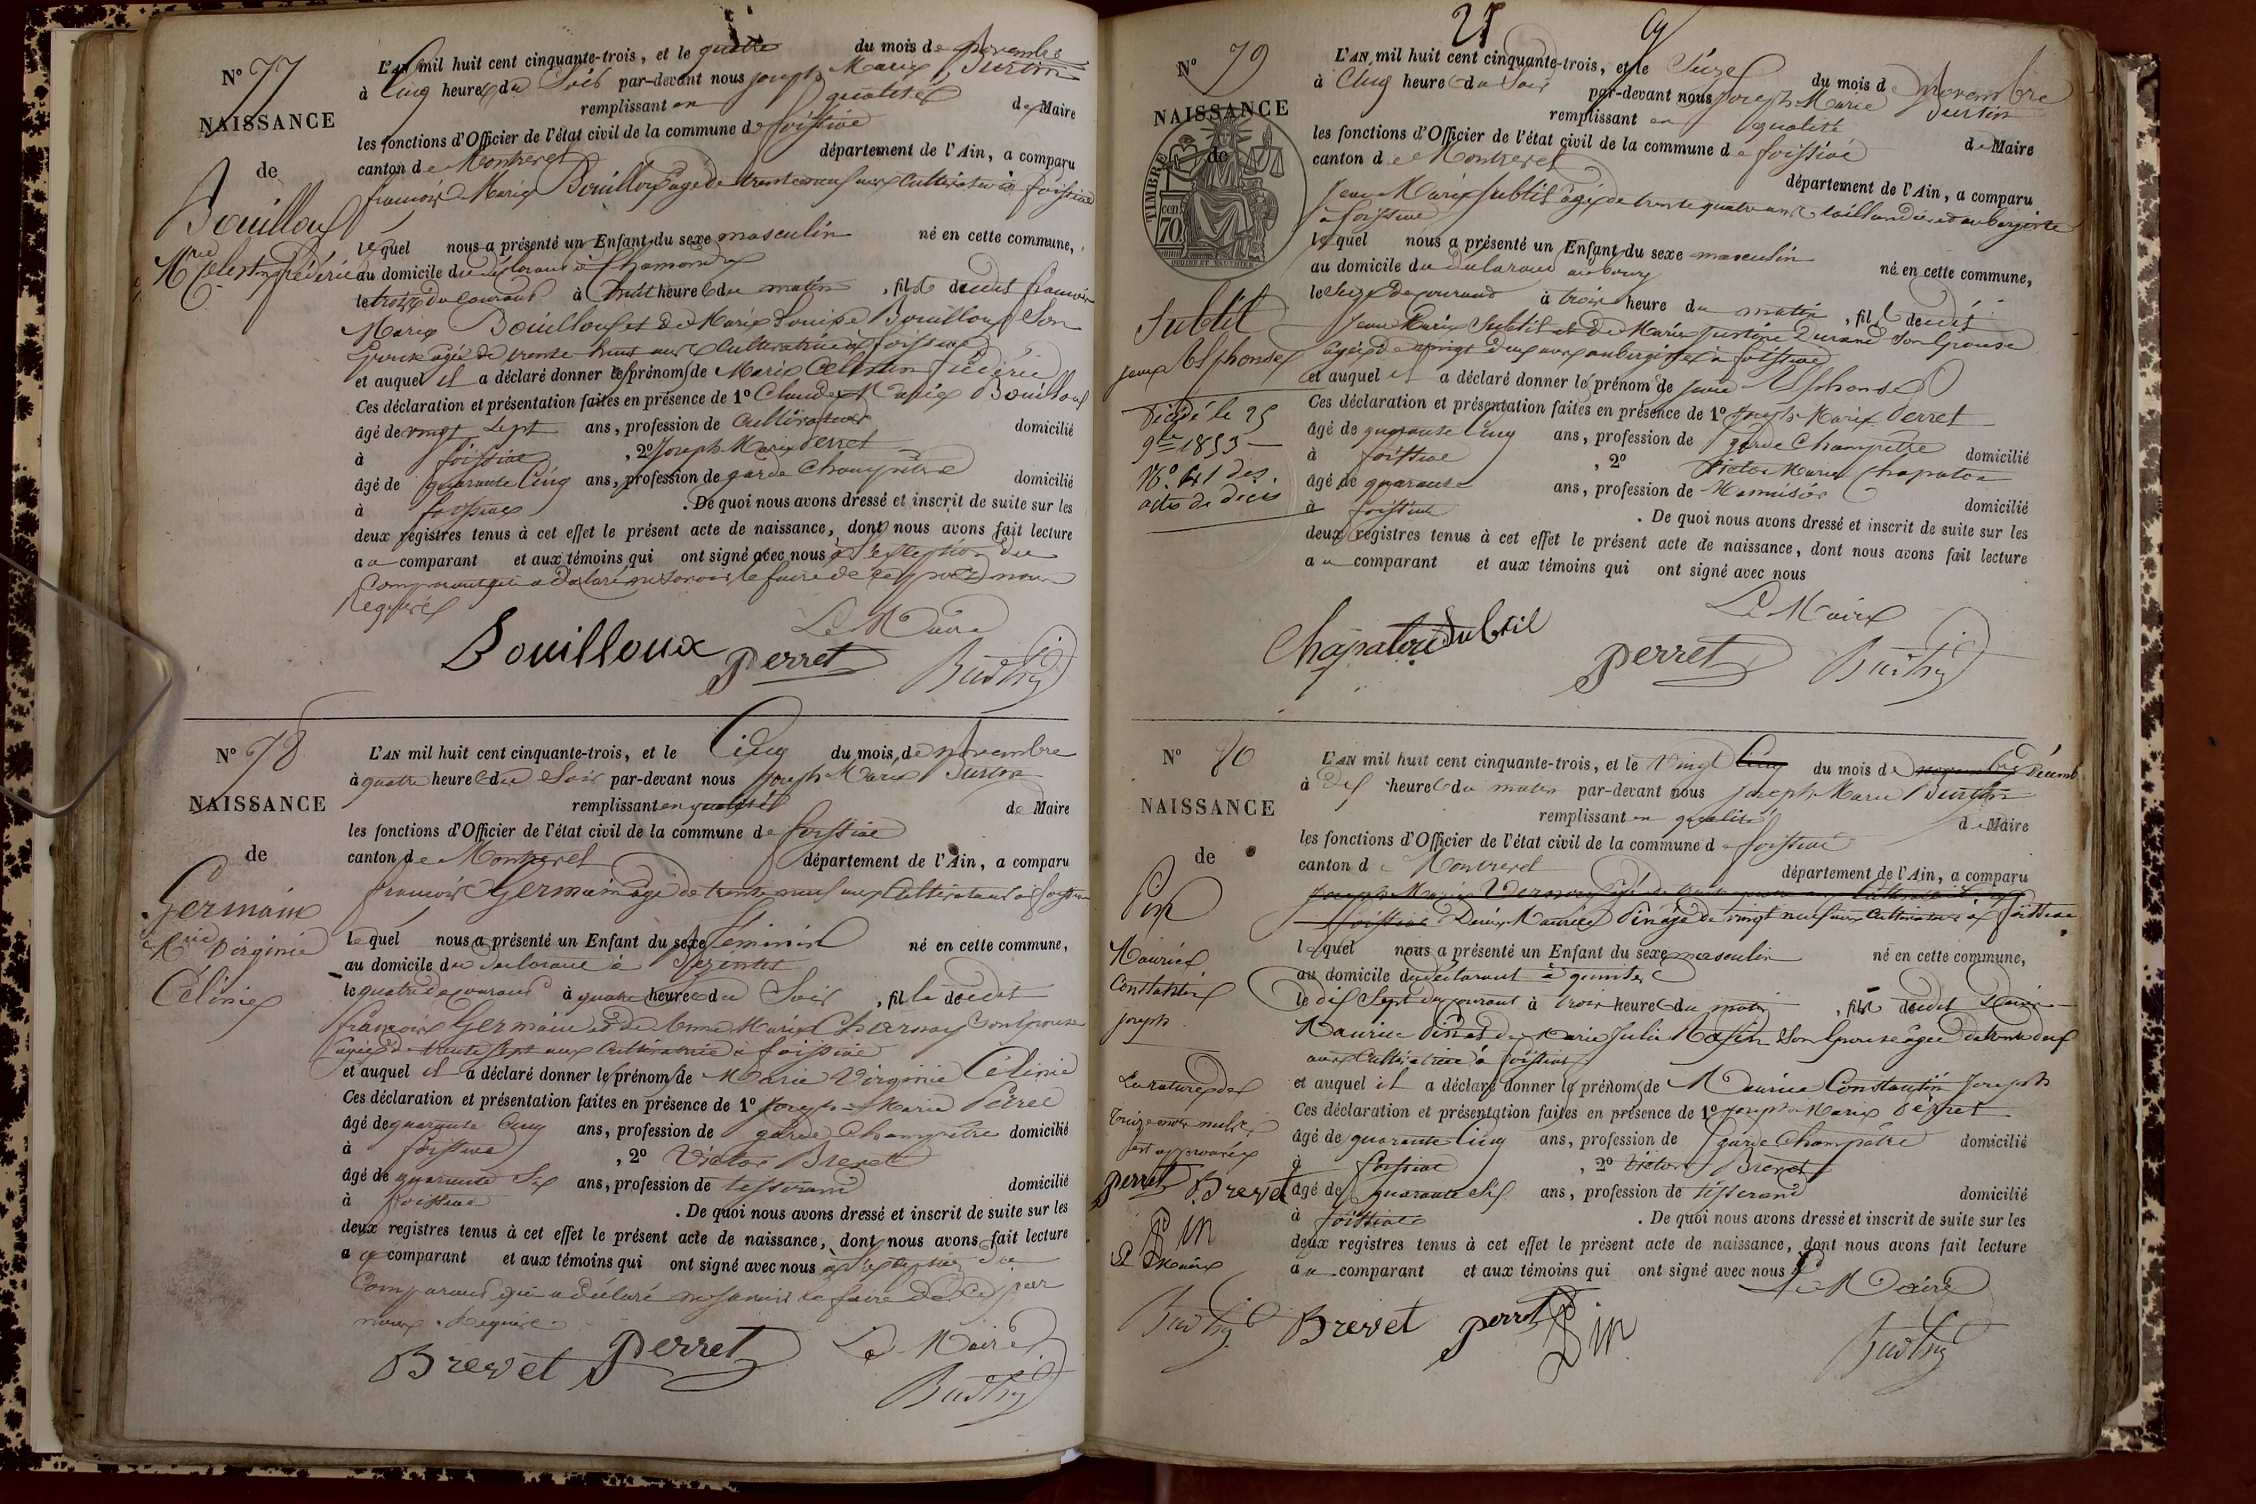 N° 77
NAISSANCE
de
Bouilloux
Mrie Celestin fréderic
L'AN mil huit cent cinquante-trois, et le quatre du mois de Novembre
à Cinq heures du Soir par-devant nous joseph Marie
remplissant en qualité de Maire
les fonctions d'Officier de l'état civil de la commune de foissiat
canton de Montrevel département de l'Ain, a comparu
francois Marie Bouilloux agé de trente neuf ans Cultivateur à foissiat
lequel nous a présenté un Enfant du sexe masculin né en cette commune,
au domicile du déclarant à
le trois du Courant à huit heures du matin, fils dudit francois
Marie Bouilloux et de Marie Louise Bouilloux Son
Epouse agée de trente huit ans Cultivatrice à foissiat
et auquel il a déclaré donner les prénoms de Marie Celestin fréderic
Ces déclaration et présentation faites en présence de 1° Claude Marie Bouilloux
âgé de vingt Sept ans, profession de Cultivateur domicilié
à foissiat, 2° Joseph Marie Perret
âgé de quarante Cinq ans, profession de garde Champêtre domicilié
à foissiat. De quoi nous avons dressé et inscrit de suite sur les
deux registres tenus à cet effet le présent acte de naissance, dont nous avons fait lecture
au comparant et aux témoins qui ont signé avec nous à l'exception du
Comparant qui a déclaré ne savoir le faire de ce par nous
Requis
Le Maire
Bouilloux Perret
N° 78
NAISSANCE
de
Germain
Mrie Virginie
Célinie
L'AN mil huit cent cinquante-trois, et le Cinq du mois de Novembre
à quatre heures du Soir par-devant nous Joseph Marie
remplissant en qualité de Maire
les fonctions d'Officier de l'état civil de la commune de foissiat
canton de Montrevel département de l'Ain, a comparu
francois Germain agé de trente neuf ans Cultivateur à foissiat
lequel nous a présenté un Enfant du sexe féminin né en cette commune,
au domicile du declarant à
le quatre du courant à quatre heures du Soir, fille dudit
françois Germain et de Anne Marie Charnay son Epouse
agée de trente Sept ans Cultivatrice à foissiat
et auquel il a déclaré donner les prénoms de Marie Virginie Célinie
Ces déclaration et présentation faites en présence de 1° Joseph Marie Perret
âgé de quarante Cinq ans, profession de garde Champêtre domicilié
à foissiat, 2° Victor Brevet
âgé de quarante Six ans, profession de tisserand domicilié
à foissiat. De quoi nous avons dressé et inscrit de suite sur les
deux registres tenus à cet effet le présent acte de naissance, dont nous avons fait lecture
au comparant et aux témoins qui ont signé avec nous à l'exception du
Comparant qui a déclaré ne savoir le faire de ce par
nous Requis
Brevet Perret Le Maire
N° 79
NAISSANCE
de
TIMBRE
70
Subtil
jean Alphonse
Décédé le 25
9bre 1853
N° 41 des
actes de décès
L'AN mil huit cent cinquante-trois, et le Seize du mois de Novembre
à Cinq heures du Soir par-devant nous Joseph Marie
remplissant en qualité de Maire
les fonctions d'Officier de l'état civil de la commune de foissiat
canton de Montrevel département de l'Ain, a comparu
Jean Marie Subtil agé de trente quatre ans taillandier et aubergiste
à foissiat
lequel nous a présenté un Enfant du sexe masculin né en cette commune,
au domicile du declarant au bourg
le Seize du courant à trois heure du matin, fils dudit
Jean Marie Subtil et de Marie Justine Durand Son Epouse
agée de vingt deux ans aubergiste à foissiat
et auquel il a déclaré donner le prénom de jean Alphonse
Ces déclaration et présentation faites en présence de 1° Joseph Marie Perret
âgé de quarante Cinq ans, profession de garde Champêtre domicilié
à foissiat, 2° Victor Marie Chapatou
âgé de quarante ans, profession de Menuisier domicilié
à foissiat. De quoi nous avons dressé et inscrit de suite sur les
deux registres tenus à cet effet le présent acte de naissance, dont nous avons fait lecture
au comparant et aux témoins qui ont signé avec nous
Le Maire
Chapatou Subtil Perret
N° 80
NAISSANCE
de
Pin
Maurice
Constantin
joseph
La rature de
treize mots nuls
est approuvée
Perret Brevet
Pin
Le Maire
L'AN mil huit cent cinquante-trois, et le vingt Cinq du mois de novembre Décemb
à dix heures du matin par-devant nous joseph Marie
remplissant en qualité de Maire
les fonctions d'Officier de l'état civil de la commune de foissiat
canton de Montrevel département de l'Ain, a comparu
Joseph Marie
foissiat Denis Maurice Pin agé de vingt neuf ans Cultivateur à foissiat
lequel nous a présenté un Enfant du sexe masculin né en cette commune,
au domicile du déclarant à
le dix Sept du courant à trois heures du matin, fils dudit Denis
Maurice Pin et de Marie Julie Son Epouse agée de
ans Cultivatrice à foissiat
et auquel il a déclaré donner les prénoms de Maurice Constantin Joseph
Ces déclaration et présentation faites en présence de 1° joseph Marie Perret
âgé de quarante Cinq ans, profession de garde Champêtre domicilié
à foissiat, 2° Victor Brevet
âgé de quarante Six ans, profession de tisserand domicilié
à foissiat. De quoi nous avons dressé et inscrit de suite sur les
deux registres tenus à cet effet le présent acte de naissance, dont nous avons fait lecture
au comparant et aux témoins qui ont signé avec nous
Le Maire
Brevet Perret Pin